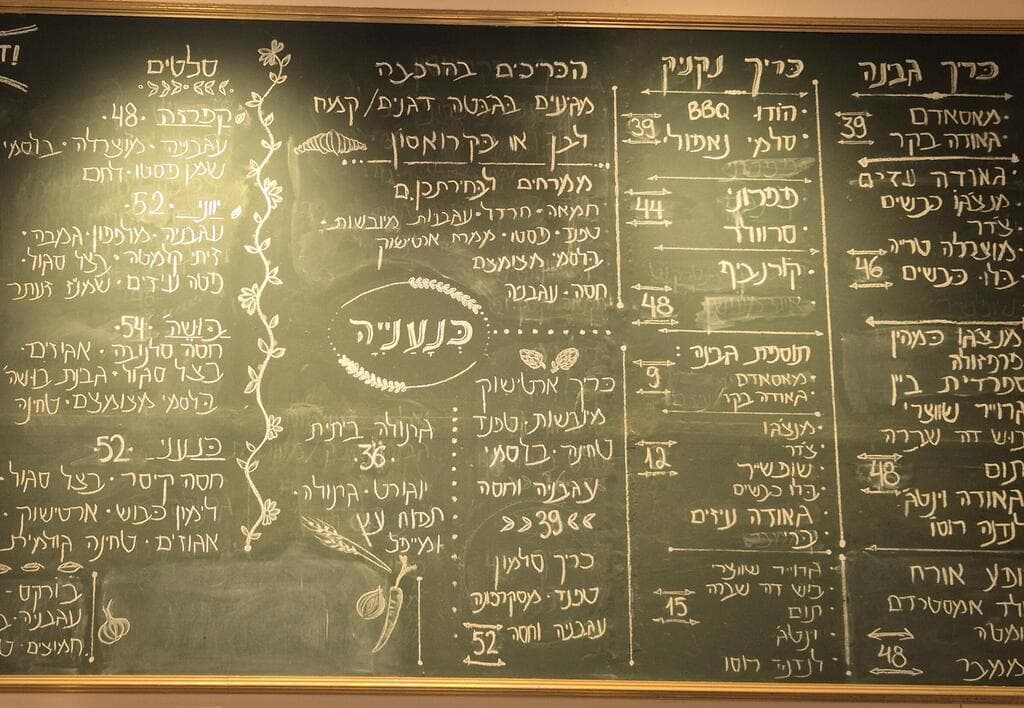 כריך גבינה
מאסאדם
גאודה בקר
39
גאודה עזים
מנצ'גו כבשים
צ'דר
מוצרלה טריה
בלו כבשים
46
מנצ'גו כמהין
ספרדית ביין
גרוייר שווצרי
בוש דה שברה
תום
48
גאודה וינטג'
לנדנה רוסו
ופע אורח
ולד אמסטרדם
48
כריך נקניק
הודו BBQ
סלמי נאפולי
39
פפרוני
44
סרוולד
קורנביף
48
תוספת גבינה:
מאסאדם
גאודה בקר
9
מנצ'גו
צ'דר
12
בלו כבשים
גאודה עזים
גרוייר שווצרי
בוש דה שברה
תום
15
וינטג'
לנדנה רוסו
הכריכים בהרכבה
מגיעים בגבטה דגנים/קמח
לבן או בקרואסון
ממרחים לבחירתכן.ם
חמאה · חרדל · עגבניות מיובשות ·
טפנד · פסטו · ממרח ארטישוק
בלסמי מצומצם
חסה · עגבניה
כְּנַעֲנִיָּה
כריך ארטישוק
טפנד
טחינה · בלסמי
עגבניה וחסה
»39«
כריך סלמון
טפנד · מסקרפונה
עגבניה וחסה
52
גרנולה ביתית
·36·
יוגורט · גרנולה
תפוח עץ
ומייפל
סלטים
קפרזה ·48·
עגבניה · מוצרלה · בלסמי
שמן פסטו · לחם
יווני ·52·
עגבניה · מלפפון · גמבה
זיתי קלמטה · בצל סגול
פיטה עיזים · שמן זעתר
בושה ·54·
חסה סלנובה · אגוזים ·
בצל סגול · גבנת בושה
בלסמי מצומצם · טחינה
כנעני ·52·
חסה קיסר · בצל סגול
לימון כבוש · ארטישוק
אגוזים · טחינה גולמית
בורקס ·
עגבניה ·
חמיצים ·